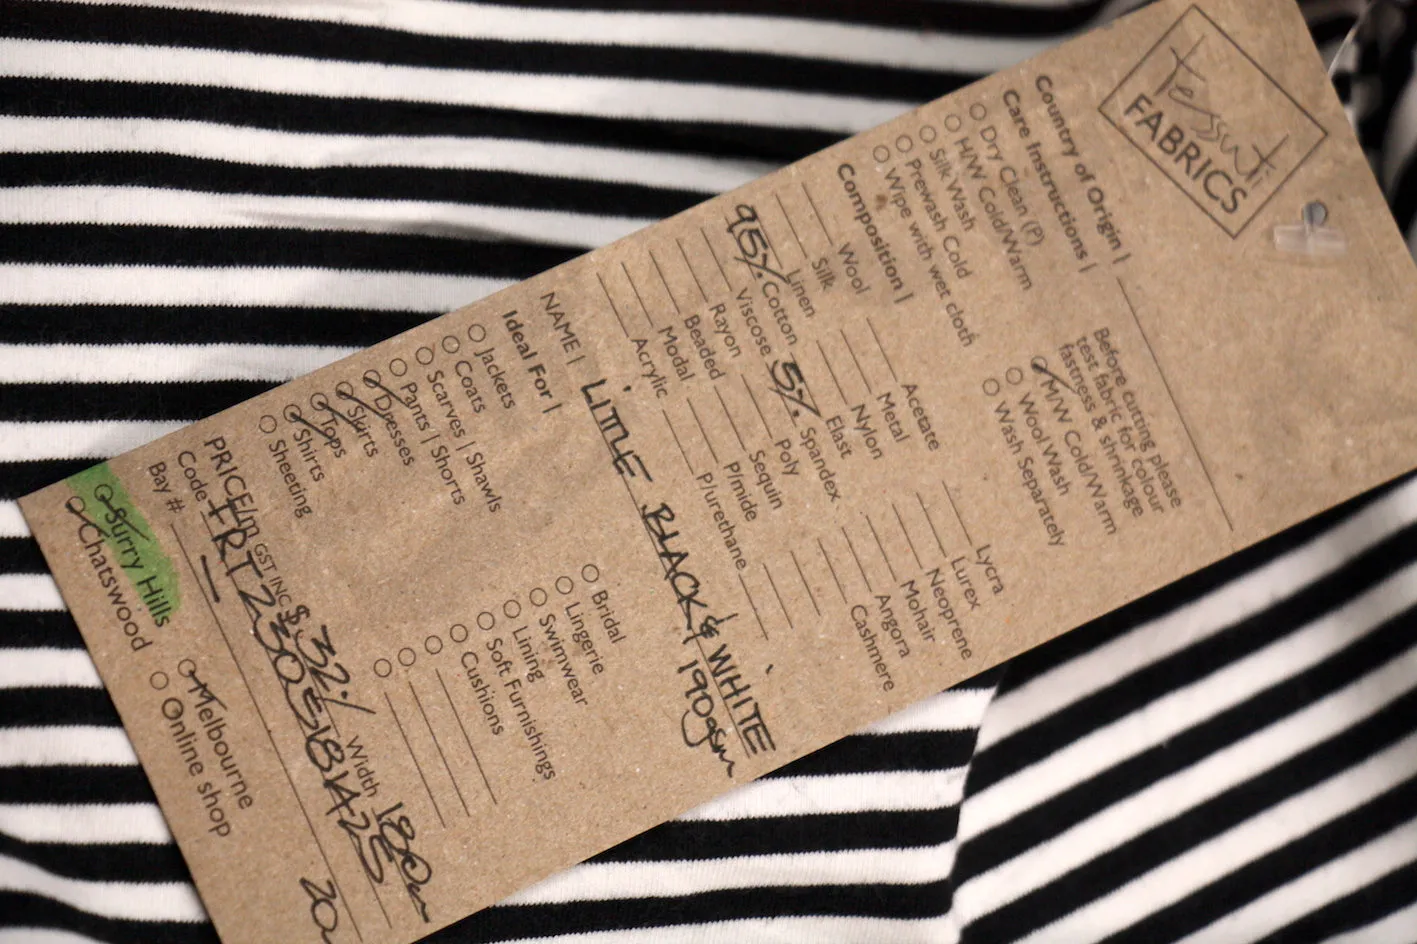 tessuti
FABRICS
Country of Origin |
Care Instructions |
Dry Clean (P)
H/W Cold/Warm
Silk Wash
Prewash Cold
Wipe with wet cloth
Before cutting please
test fabric for colour
fastness & shrinkage
M/W Cold/Warm
Wool Wash
Wash Separately
Composition |
Wool
Silk
Linen
95% Cotton
Viscose
Rayon
Beaded
Modal
Acrylic
Acetate
Metal
Nylon
Elast
5% Spandex
Poly
Sequin
P/mide
P/urethane
Lycra
Lurex
Neoprene
Mohair
Angora
Cashmere
NAME | LITTLE BLACK & WHITE
190gsm
Ideal For |
Jackets
Coats
Scarves | Shawls
Pants | Shorts
Dresses
Skirts
Tops
Shirts
Sheeting
Bridal
Lingerie
Swimwear
Lining
Soft Furnishings
Cushions
PRICE/m GST INC $ 32 Width 180cm
Code
Bay #
20
Surry Hills
Chatswood
Melbourne
Online shop